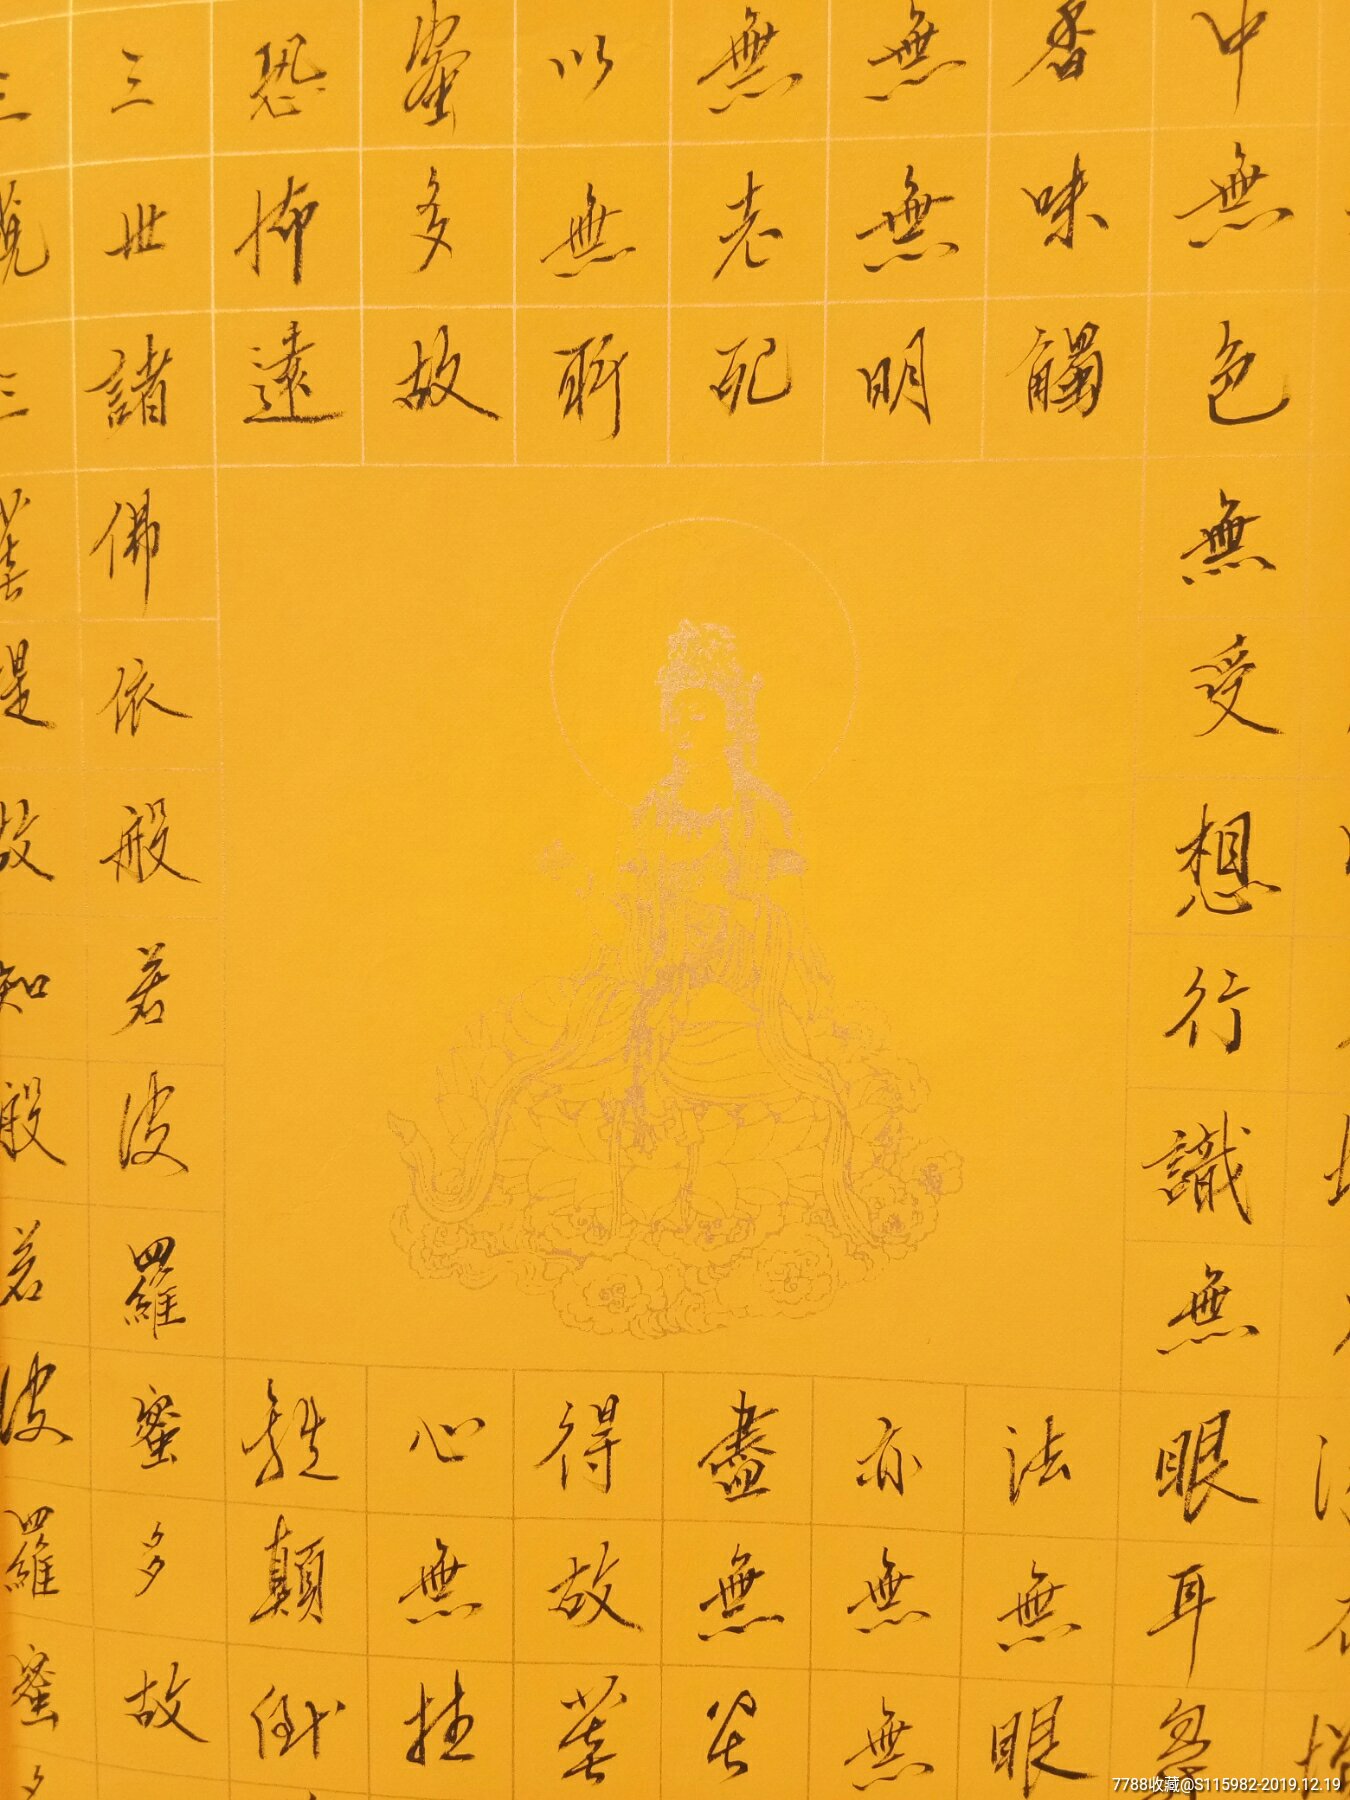 中無色無受想行識無眼耳鼻
香味觸法無眼
無無明亦無無
無老死盡無苦
以無所得故菩
蜜多故心無挂
恐怖遠離顛倒
三世諸佛依般若波羅蜜多故
三藐三菩提故知般若波羅蜜多
7788收藏@S115982-2019.12.19